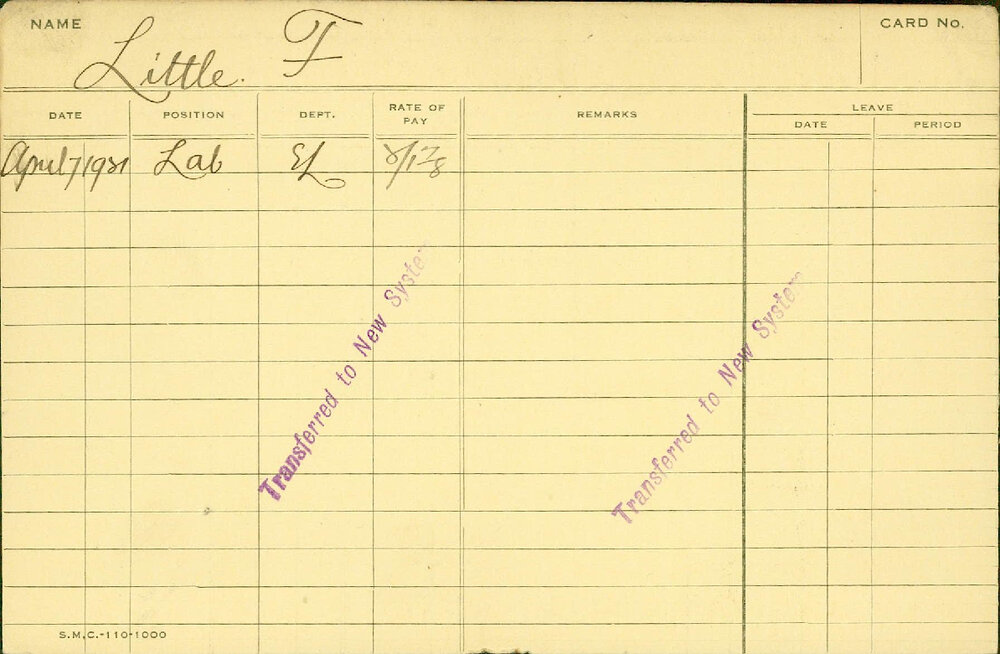 NAME
CARD No.
Little. F
DATE POSITION DEPT. RATE OF PAY REMARKS LEAVE
DATE PERIOD
April 7/1931 Lab EL
Transferred to New System
Transferred to New System
S.M.C.-110-1000